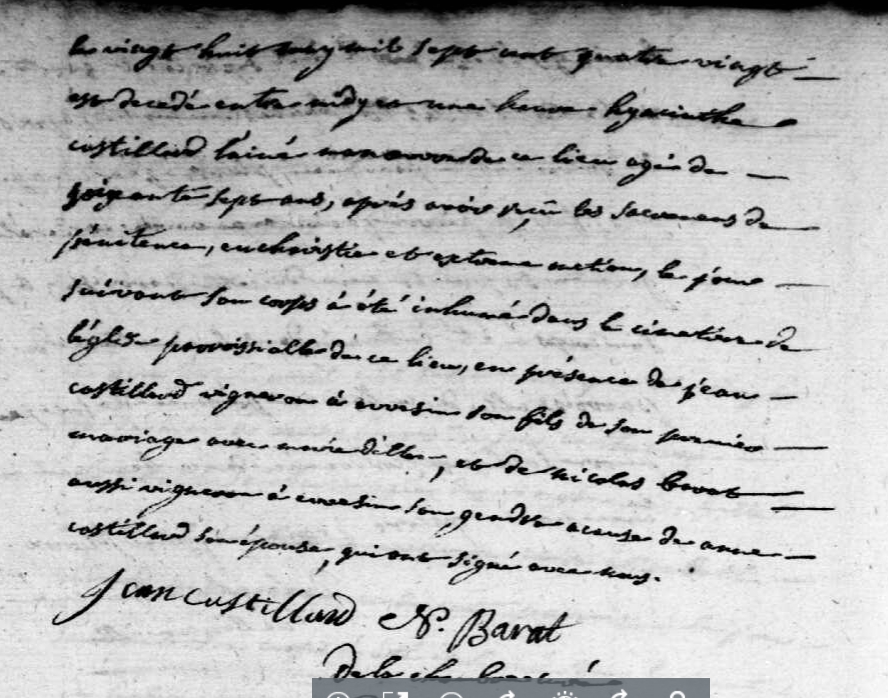 le vingt huit may mil sept cent quatre vingt
est decedé entre midy et une heure hyacinthe
costillard l'ainé manoeuvre de ce lieu agé de
soixante sept ans, aprés avoir reçu les sacremens de
pénitence, euchristie et extreme onction, le jour
suivant son corps à été inhumé dans le cimetière de
l'église paroissialle de ce lieu, en présence de jean
costillard vigneron à son fils de son premier
mariage avec marie , et de nicolas barat
aussi vigneron à son gendre acause de anne
costillard son épouse, qui ont signé avec nous.
Jean Costillard N. Barat